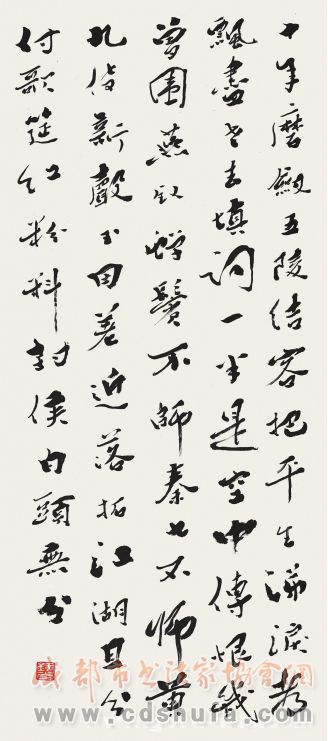 十年磨劍五陵結客把平生涕淚都
飄盡老去填詞一半是空中傳恨幾
曾圍燕釵蟬鬢不師秦七不師黃
九倚新聲玉田差近落拓江湖且分
付歌筵紅粉料封侯白頭無分
成都市书法家协会网
www.cdshufa.com